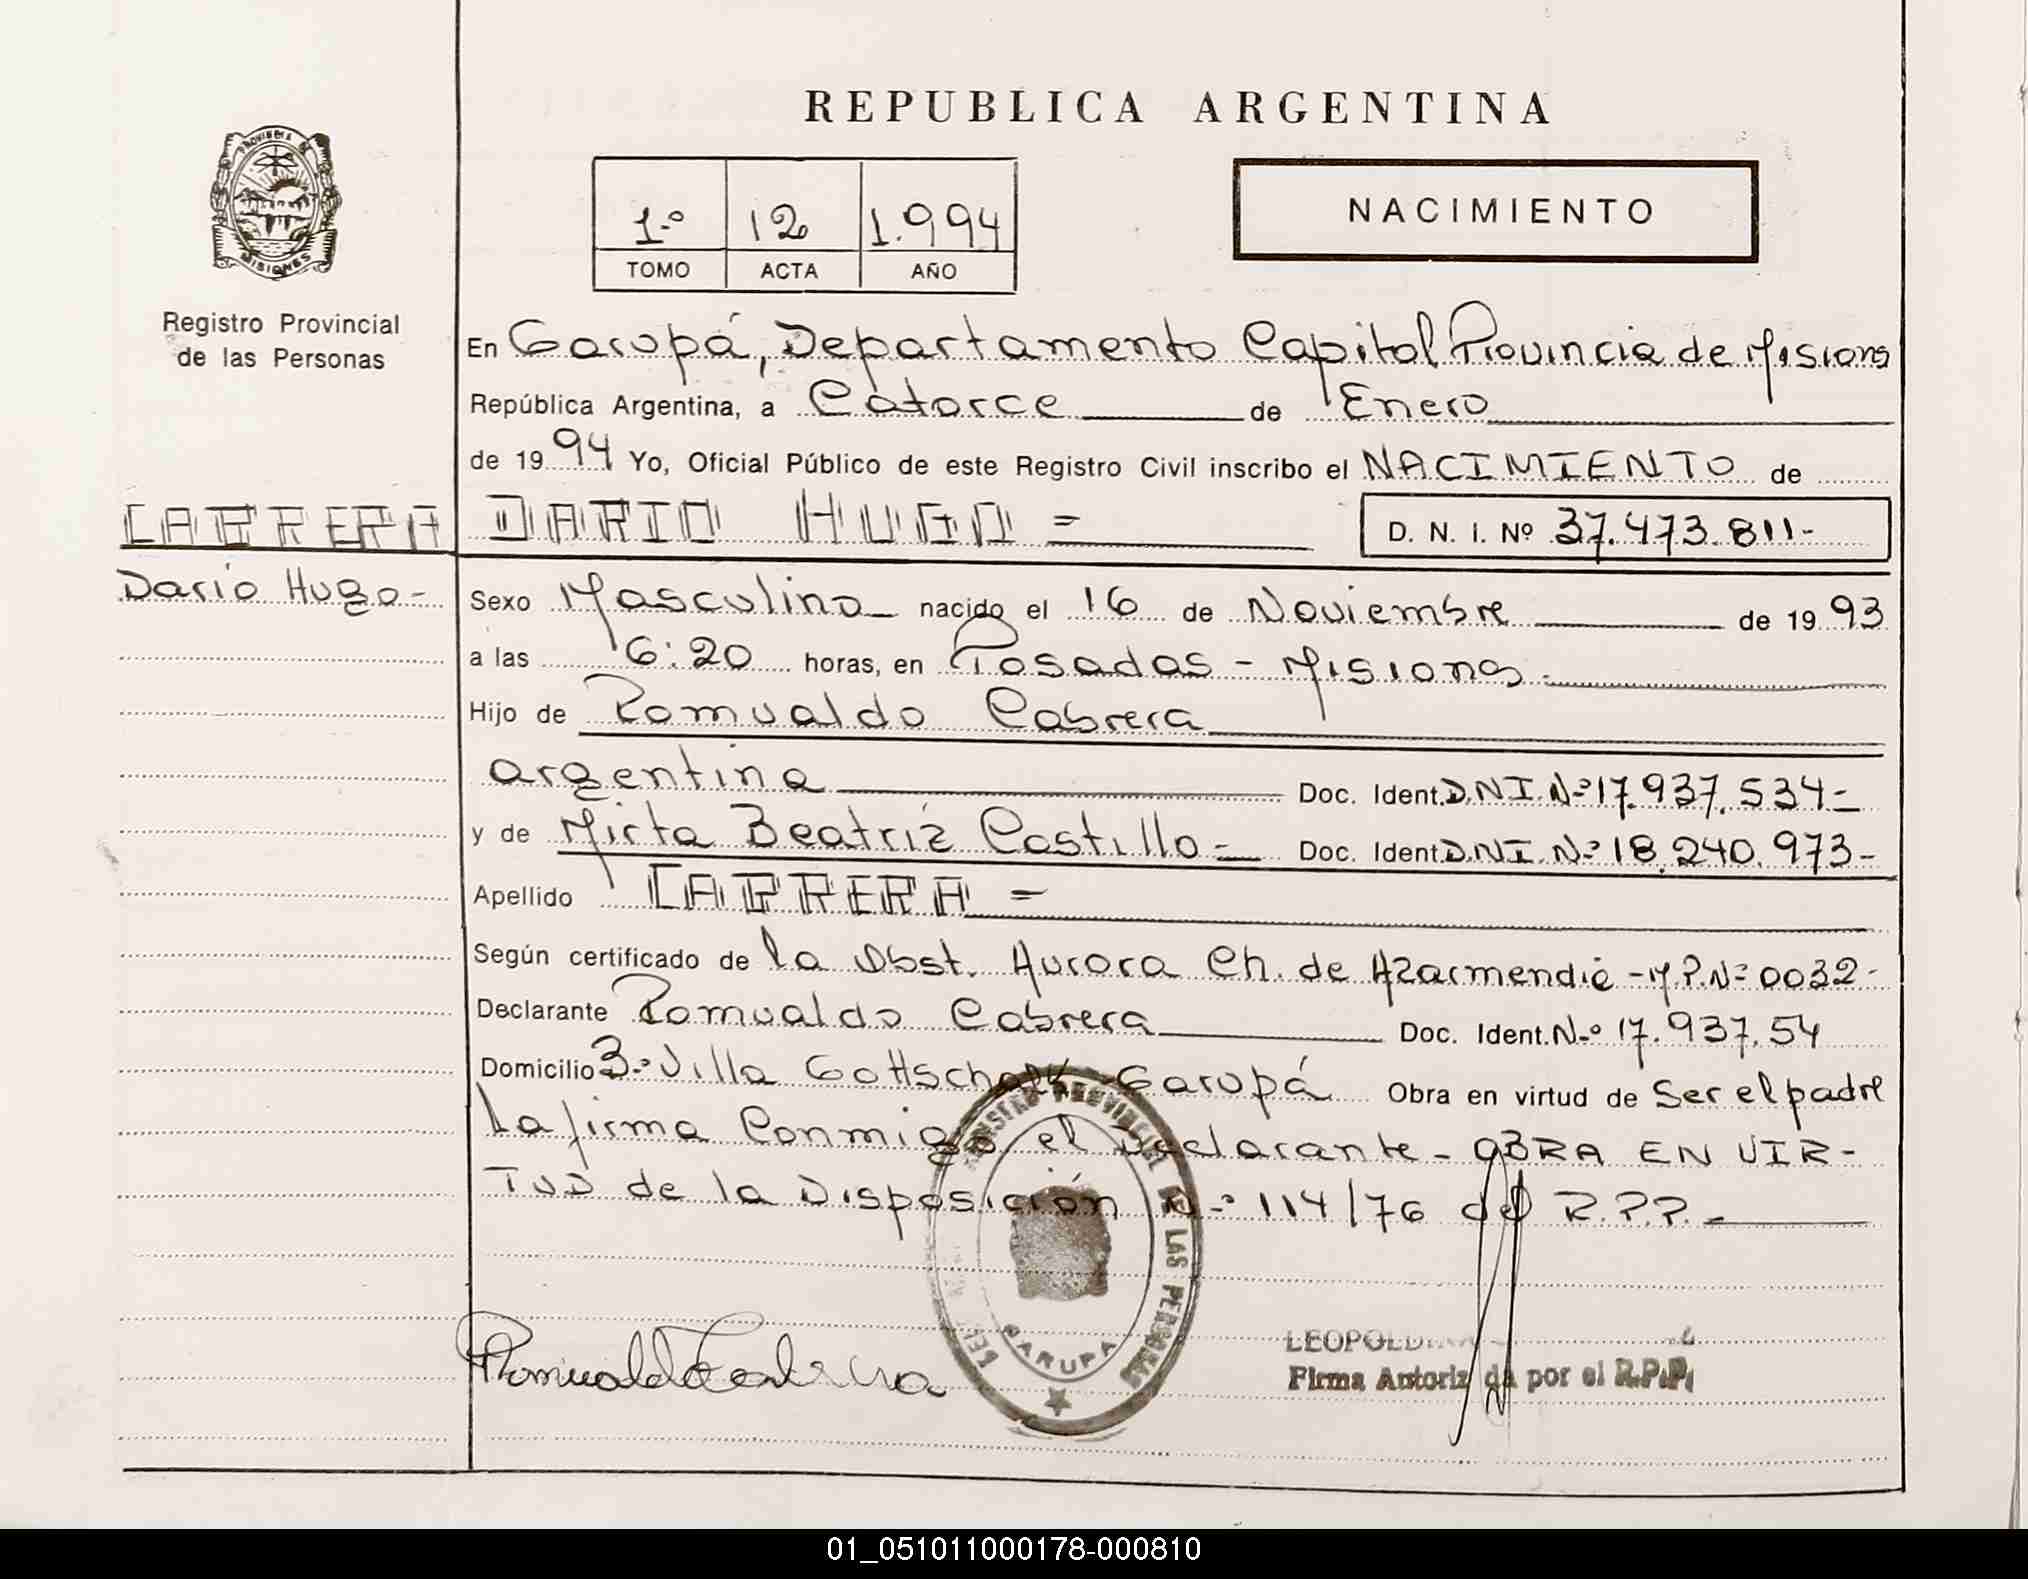 REPUBLICA ARGENTINA
PROVINCIA DE
MISIONES
Registro Provincial
de las Personas
1.º 12 1.994
TOMO ACTA AÑO
NACIMIENTO
En Garupá, Departamento Capital Provincia de Misiones
República Argentina, a Catorce de Enero
de 1994 Yo, Oficial Público de este Registro Civil inscribo el NACIMIENTO de
CABRERA DARIO HUGO =
D. N. I. Nº 37.473.811-
Dario Hugo-
Sexo Masculino nacido el 16 de Noviembre de 1993
a las 6:20 horas, en Posadas - Misiones-
Hijo de Romualdo Cabrera
argentina Doc. Ident. D.N.I. Nº 17.937.534-
y de Mirta Beatriz Castillo- Doc. Ident. D.N.I. Nº 18.240.973-
Apellido CABRERA =
Según certificado de la Obst. Aurora Ch. de Azarmendia - M.P.Nº 0032-
Declarante Romualdo Cabrera Doc. Ident. Nº 17.937.54
Domicilio 3º Villa Gottschalk Garupá Obra en virtud de Ser el padre
La firma Conmigo el Declarante - OBRA EN VIR-
TUD de la Disposición Nº 114/76 del R.P.P.-
REGISTRO PROVINCIAL DE LAS PERSONAS
GARUPA
Romualdo Cabrera
Firma Autorizada por el R.P.P.
01_051011000178-000810